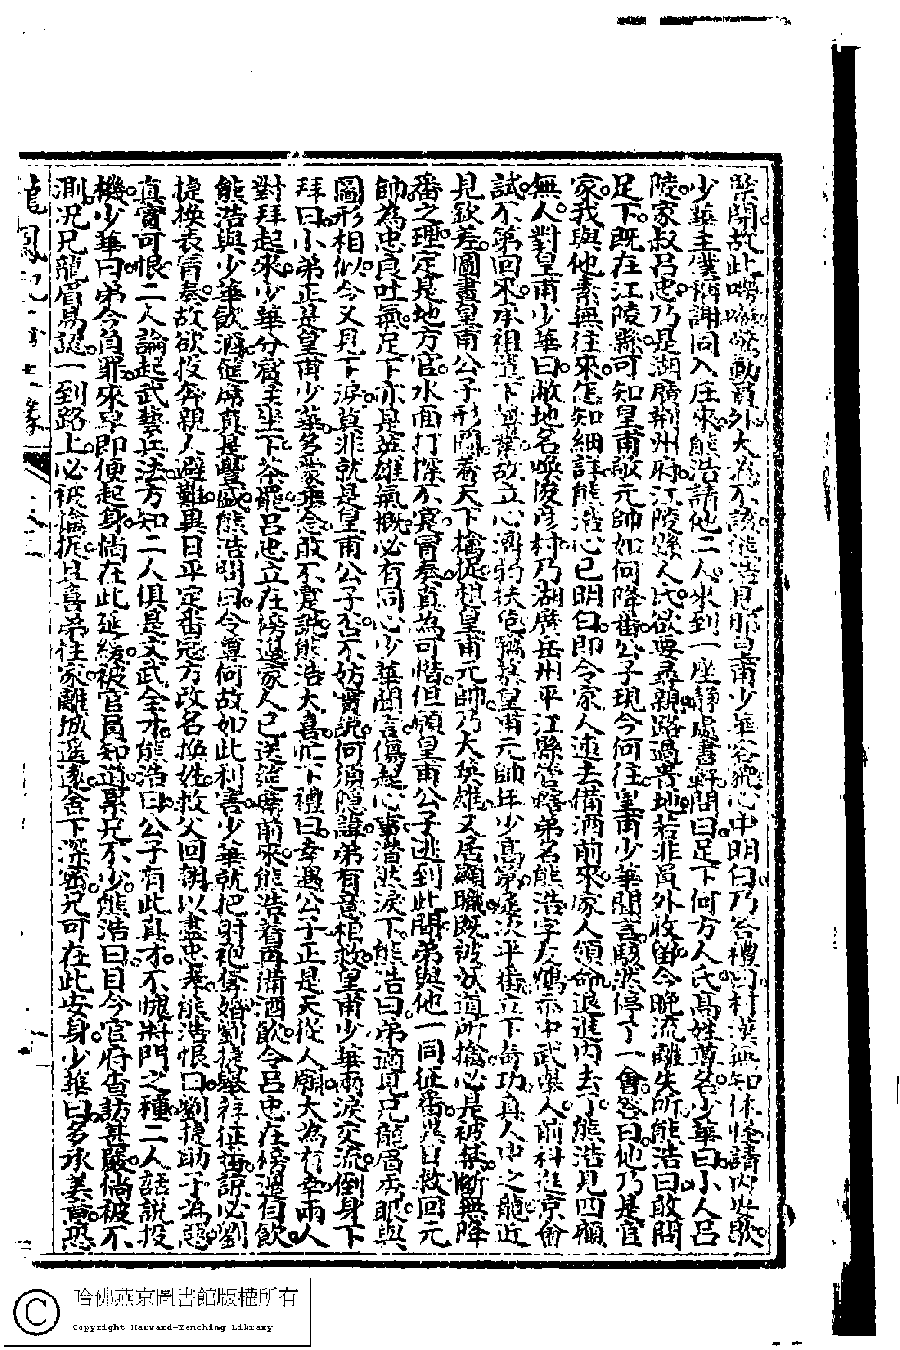 緊閉故此嘮噪驚動員外大為不該熊浩見那皇甫少華容貌心中明白乃答禮曰村漢無知休怪請內安歇
少華主僕稱謝同入庄來熊浩請他二人來到一座靜處書軒問曰足下何方人氏高姓尊名少華曰小人呂
陵家叔呂忠乃是湖廣荆州府江陵縣人氏欲要尋親路過貴地若非員外收留今晚流離失所熊浩曰敢問
足下既在江陵縣可知皇甫敬元帥如何降番公子現今何往皇甫少華聞言駭然停了一會答曰他乃是官
家我與他素無往來怎知細詳熊浩心已明曰即令家人速去備酒前來家人領命退進內去了熊浩見四顧
無人對皇甫少華曰敝地名喚俊彥村乃湖廣岳州平江縣管轄弟名熊浩字友鶴亦中武舉人前科往京會
試不第回來承祖遺下薄業故立心濟弱扶危竊慕皇甫元帥年少高第屢次平番立下奇功真人中之龍近
見欽差圖畫皇甫公子形圖着天下擒捉想皇甫元帥乃大英雄又居顯職既被妖道所擒必是被禁斷無降
番之理定是地方官水面打探不寔冒奏真為可惜但願皇甫公子逃到此間弟與他一同征番異日救回元
帥為忠良吐氣足下亦是英雄氣概必有同心少華聞言傷起心事潸然淚下熊浩曰弟適見兄龍眉鳳眼與
圖形相似今又見下淚莫非就是皇甫公子否不妨實說何須隱諱弟有意相救皇甫少華兩淚交流倒身下
拜曰小弟正是皇甫少華多蒙垂念敢不寔說熊浩大喜忙下禮曰幸遇公子正是天從人願大為有幸兩人
對拜起來少華分賓主坐下茶罷呂忠立在傍邊家人已送筵席前來熊浩着再備酒飲令呂忠在傍邊自飲
熊浩與少華飲酒筵席真是豐盛熊浩問曰令尊何故如此利害少華就把射袍奪婚劉捷舉荐征番說必劉
捷換表冒奏故欲投奔親人避難異日平定番寇方改名換姓救父回朝以盡忠孝熊浩恨曰劉捷助子為惡
真實可恨二人論起武藝兵法方知二人俱是文武全才熊浩曰公子有此真才不愧將門之種二人話說投
機少華曰弟今負罪來卑即便起身倘在此延緩被官員知道累兄不少熊浩曰目今官府查訪甚嚴倘被不
測況兄龍眉易認一到路上必被擒捉且喜弟住家離城遥遠舍下深密兄可在此安身少華曰多承美意恐
龍鳳配再生緣